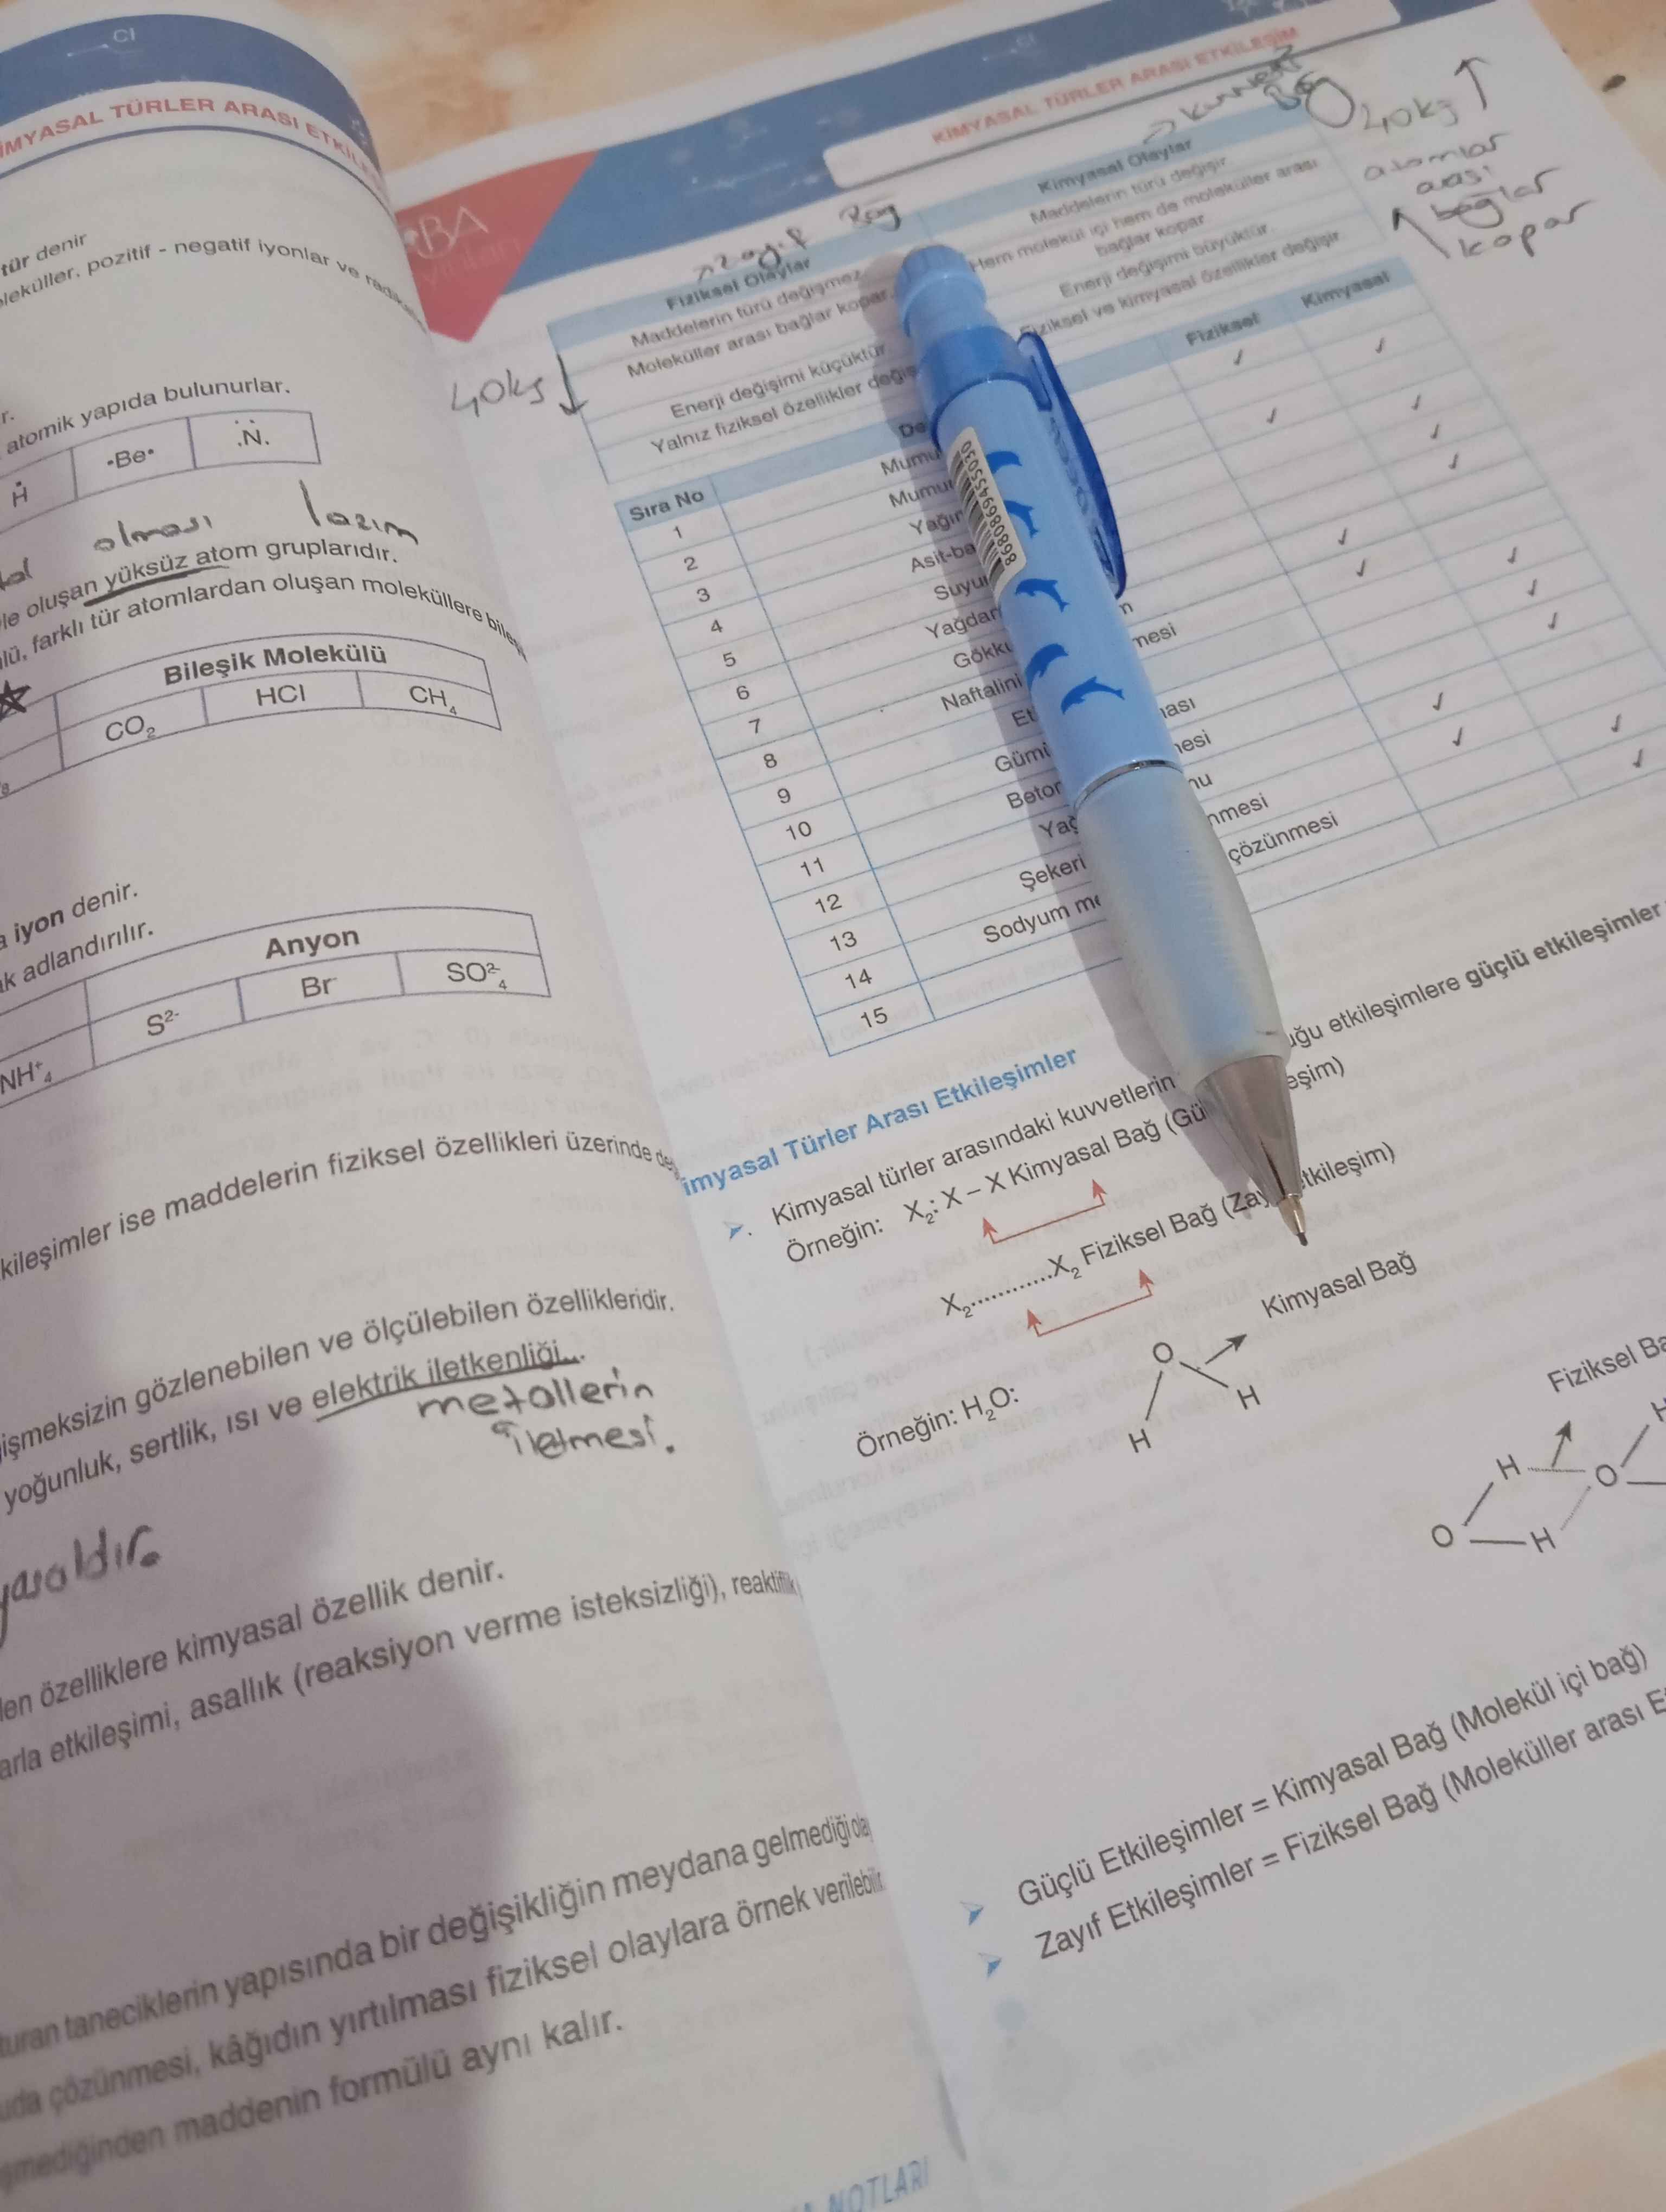 Cl
KİMYASAL TÜRLER ARASI ETKİLE
tür denir
leküller, pozitif - negatif iyonlar ve
r.
atomik yapıda bulunurlar.
Ḣ
•Be•
.N̈.
olması lazım
le oluşan yüksüz atom gruplarıdır.
lü, farklı tür atomlardan oluşan moleküllere
Bileşik Molekülü
CO₂
HCl
CH₄
a iyon denir.
ak adlandırılır.
Anyon
NH⁺₄
S²⁻
Br⁻
SO²⁻₄
kileşimler ise maddelerin fiziksel özellikleri üzerinde
işmeksizin gözlenebilen ve ölçülebilen özellikleridir.
yoğunluk, sertlik, ısı ve elektrik iletkenliği...
metallerin
iletmesi.
yasaldır.
len özelliklere kimyasal özellik denir.
arla etkileşimi, asallık (reaksiyon verme isteksizliği), reaktiflik
turan taneciklerin yapısında bir değişikliğin meydana gelmediği
uda çözünmesi, kâğıdın yırtılması fiziksel olaylara örnek verilebilir.
şmediğinden maddenin formülü aynı kalır.
NOTLARI
BA
KİMYASAL TÜRLER ARASI ETKİLEŞİM
→ kuvvetli
40kj ↑
atomlar
arası
bağlar
kopar
→ zayıf Bağ
40kj ↓
Fiziksel Olaylar
Kimyasal Olaylar
Maddelerin türü değişmez
Maddelerin türü değişir.
Moleküller arası bağlar kopar.
Hem molekül içi hem de moleküller arası
bağlar kopar.
Enerji değişimi küçüktür
Enerji değişimi büyüktür.
Yalnız fiziksel özellikler değiş
Fiziksel ve kimyasal özellikler değişir.
Sıra No
De
Fiziksel
Kimyasal
1 Mumu ✓
2 Mumu ✓
3 Yağı ✓
4 Asit-ba ✓
5 Suyu ✓
6 Yağda ✓
7 Gökk ✓
8 Naftalin mesi ✓
9 Et ✓
10 Gümü ası ✓
11 Beto nesi ✓
12 Yağ nu ✓
13 Şekeri nmesi ✓
14 Sodyum me çözünmesi ✓
15 ✓
8680869455030
imyasal Türler Arası Etkileşimler
Kimyasal türler arasındaki kuvvetlerin uğu etkileşimlere güçlü etkileşimler
Örneğin: X₂: X – X Kimyasal Bağ (Gü eşim)
X₂............X₂ Fiziksel Bağ (Zay etkileşim)
Örneğin: H₂O:
O
H
H
Kimyasal Bağ
Fiziksel Ba
H
O
H
O
H
Güçlü Etkileşimler = Kimyasal Bağ (Molekül içi bağ)
Zayıf Etkileşimler = Fiziksel Bağ (Moleküller arası E